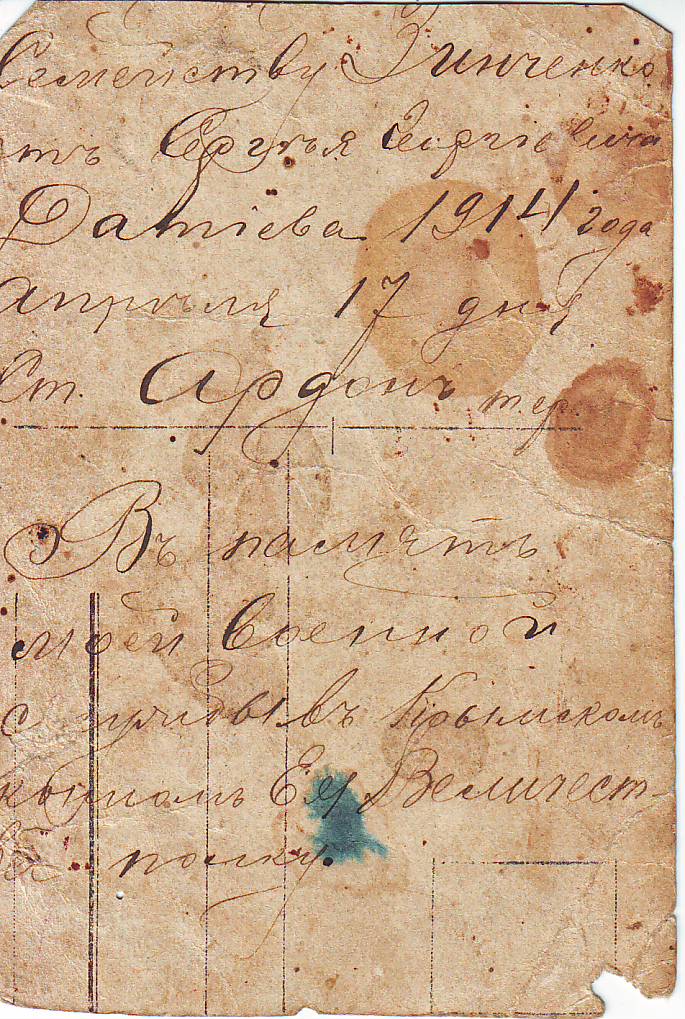 Семейству Зинченко
отъ Сергѣя Георгіевича
Датіева 1914 года
Апрѣля 17 дня
Ст. Ардонъ тер.
Въ память
моей военной
службы въ Крымскомъ
конномъ Ея Величест-
ва полку.